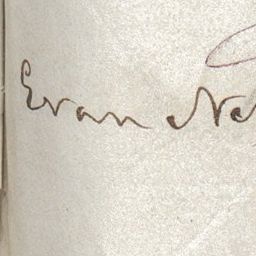 Evan Ne